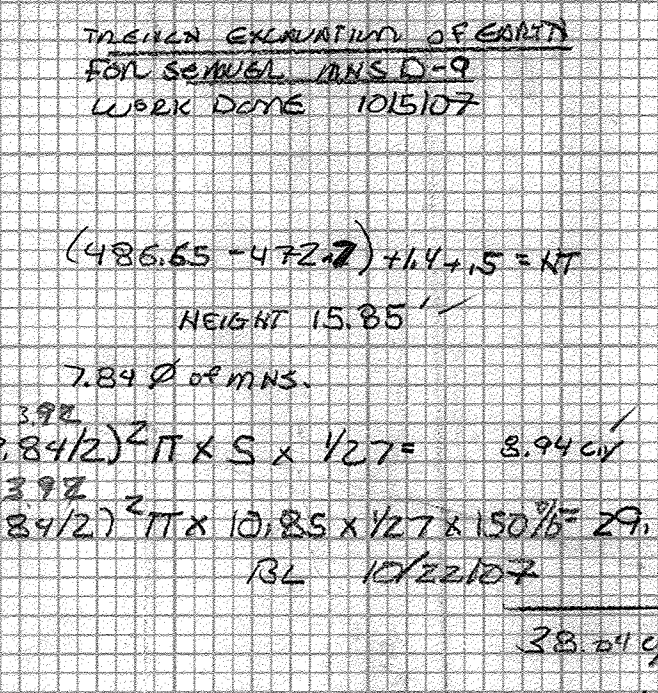 TRENCH EXCAVATION OF EARTH
FOR SEWER MHS D-9
WORK DONE 10/5/07
(486.65 - 472.7) + 1.4 + .5 = HT
HEIGHT 15.85' ✓
7.84 Ø of MHS.
3.92
.84/2)² π x 5 x 1/27 = 8.94 cy ✓
3.92
84/2)² π x 10.85 x 1/27 x 150% = 29.
BL 10/22/07
38.04 c